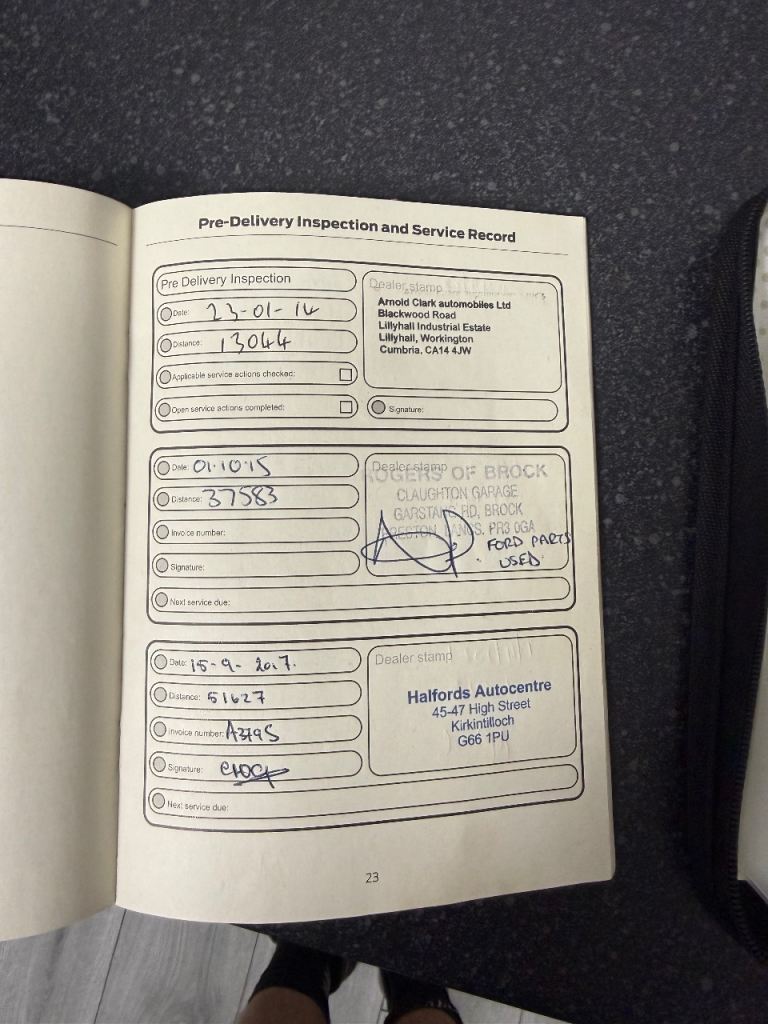 Pre-Delivery Inspection and Service Record
Pre Delivery Inspection
Date: 23-01-14
Distance: 13044
Applicable service actions checked:
Open service actions completed:
Dealer stamp
Arnold Clark automobiles Ltd
Blackwood Road
Lillyhall Industrial Estate
Lillyhall, Workington
Cumbria, CA14 4JW
Signature:
Date: 01.10.15
Distance: 37583
Invoice number:
Signature:
Next service due:
Dealer stamp
ROGERS OF BROCK
CLAUGHTON GARAGE
GARSTANG RD, BROCK
PRESTON, LANCS. PR3 0GA
FORD PARTS
USED.
Date: 15-9-2017.
Distance: 51627
Invoice number: A3795
Signature:
Next service due:
Dealer stamp
Halfords Autocentre
45-47 High Street
Kirkintilloch
G66 1PU
23